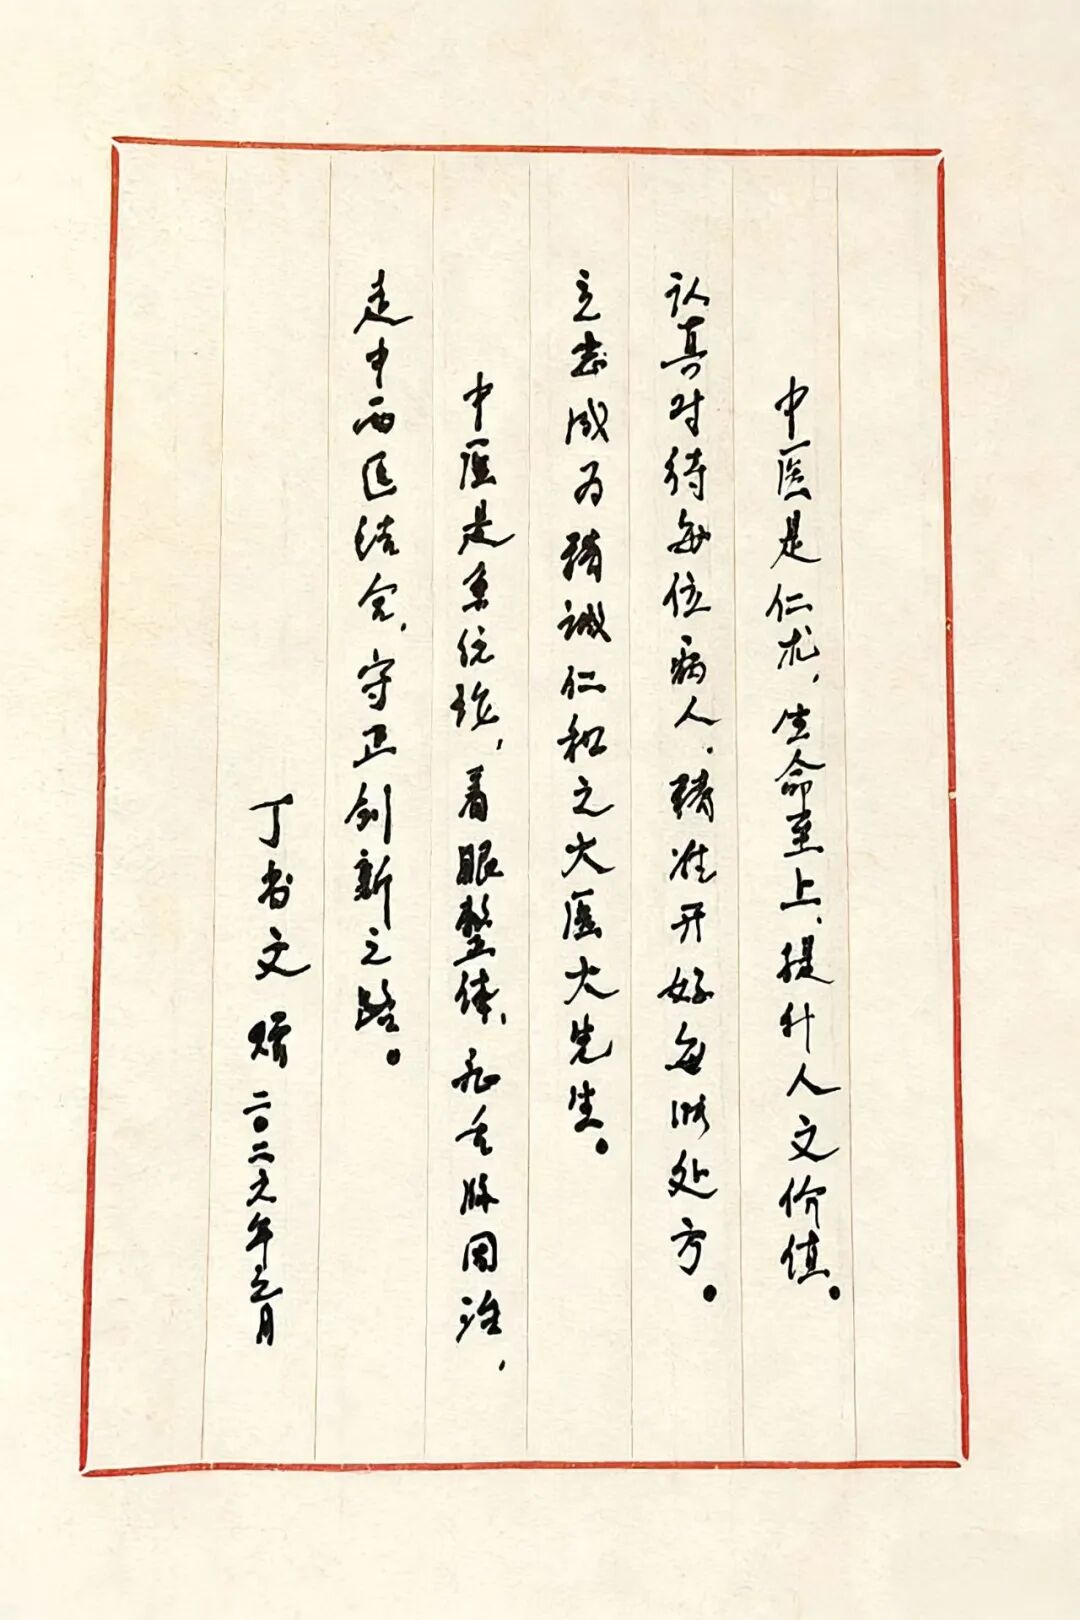 中医是仁术，生命至上，提升人文价值。
认真对待每位病人，精准开好每张处方。
立志成为精诚仁和之大医大先生。
中医是系统论，着眼整体，脉因治，
走中西医结合，守正创新之路。
丁书文 赠 二〇二六年月